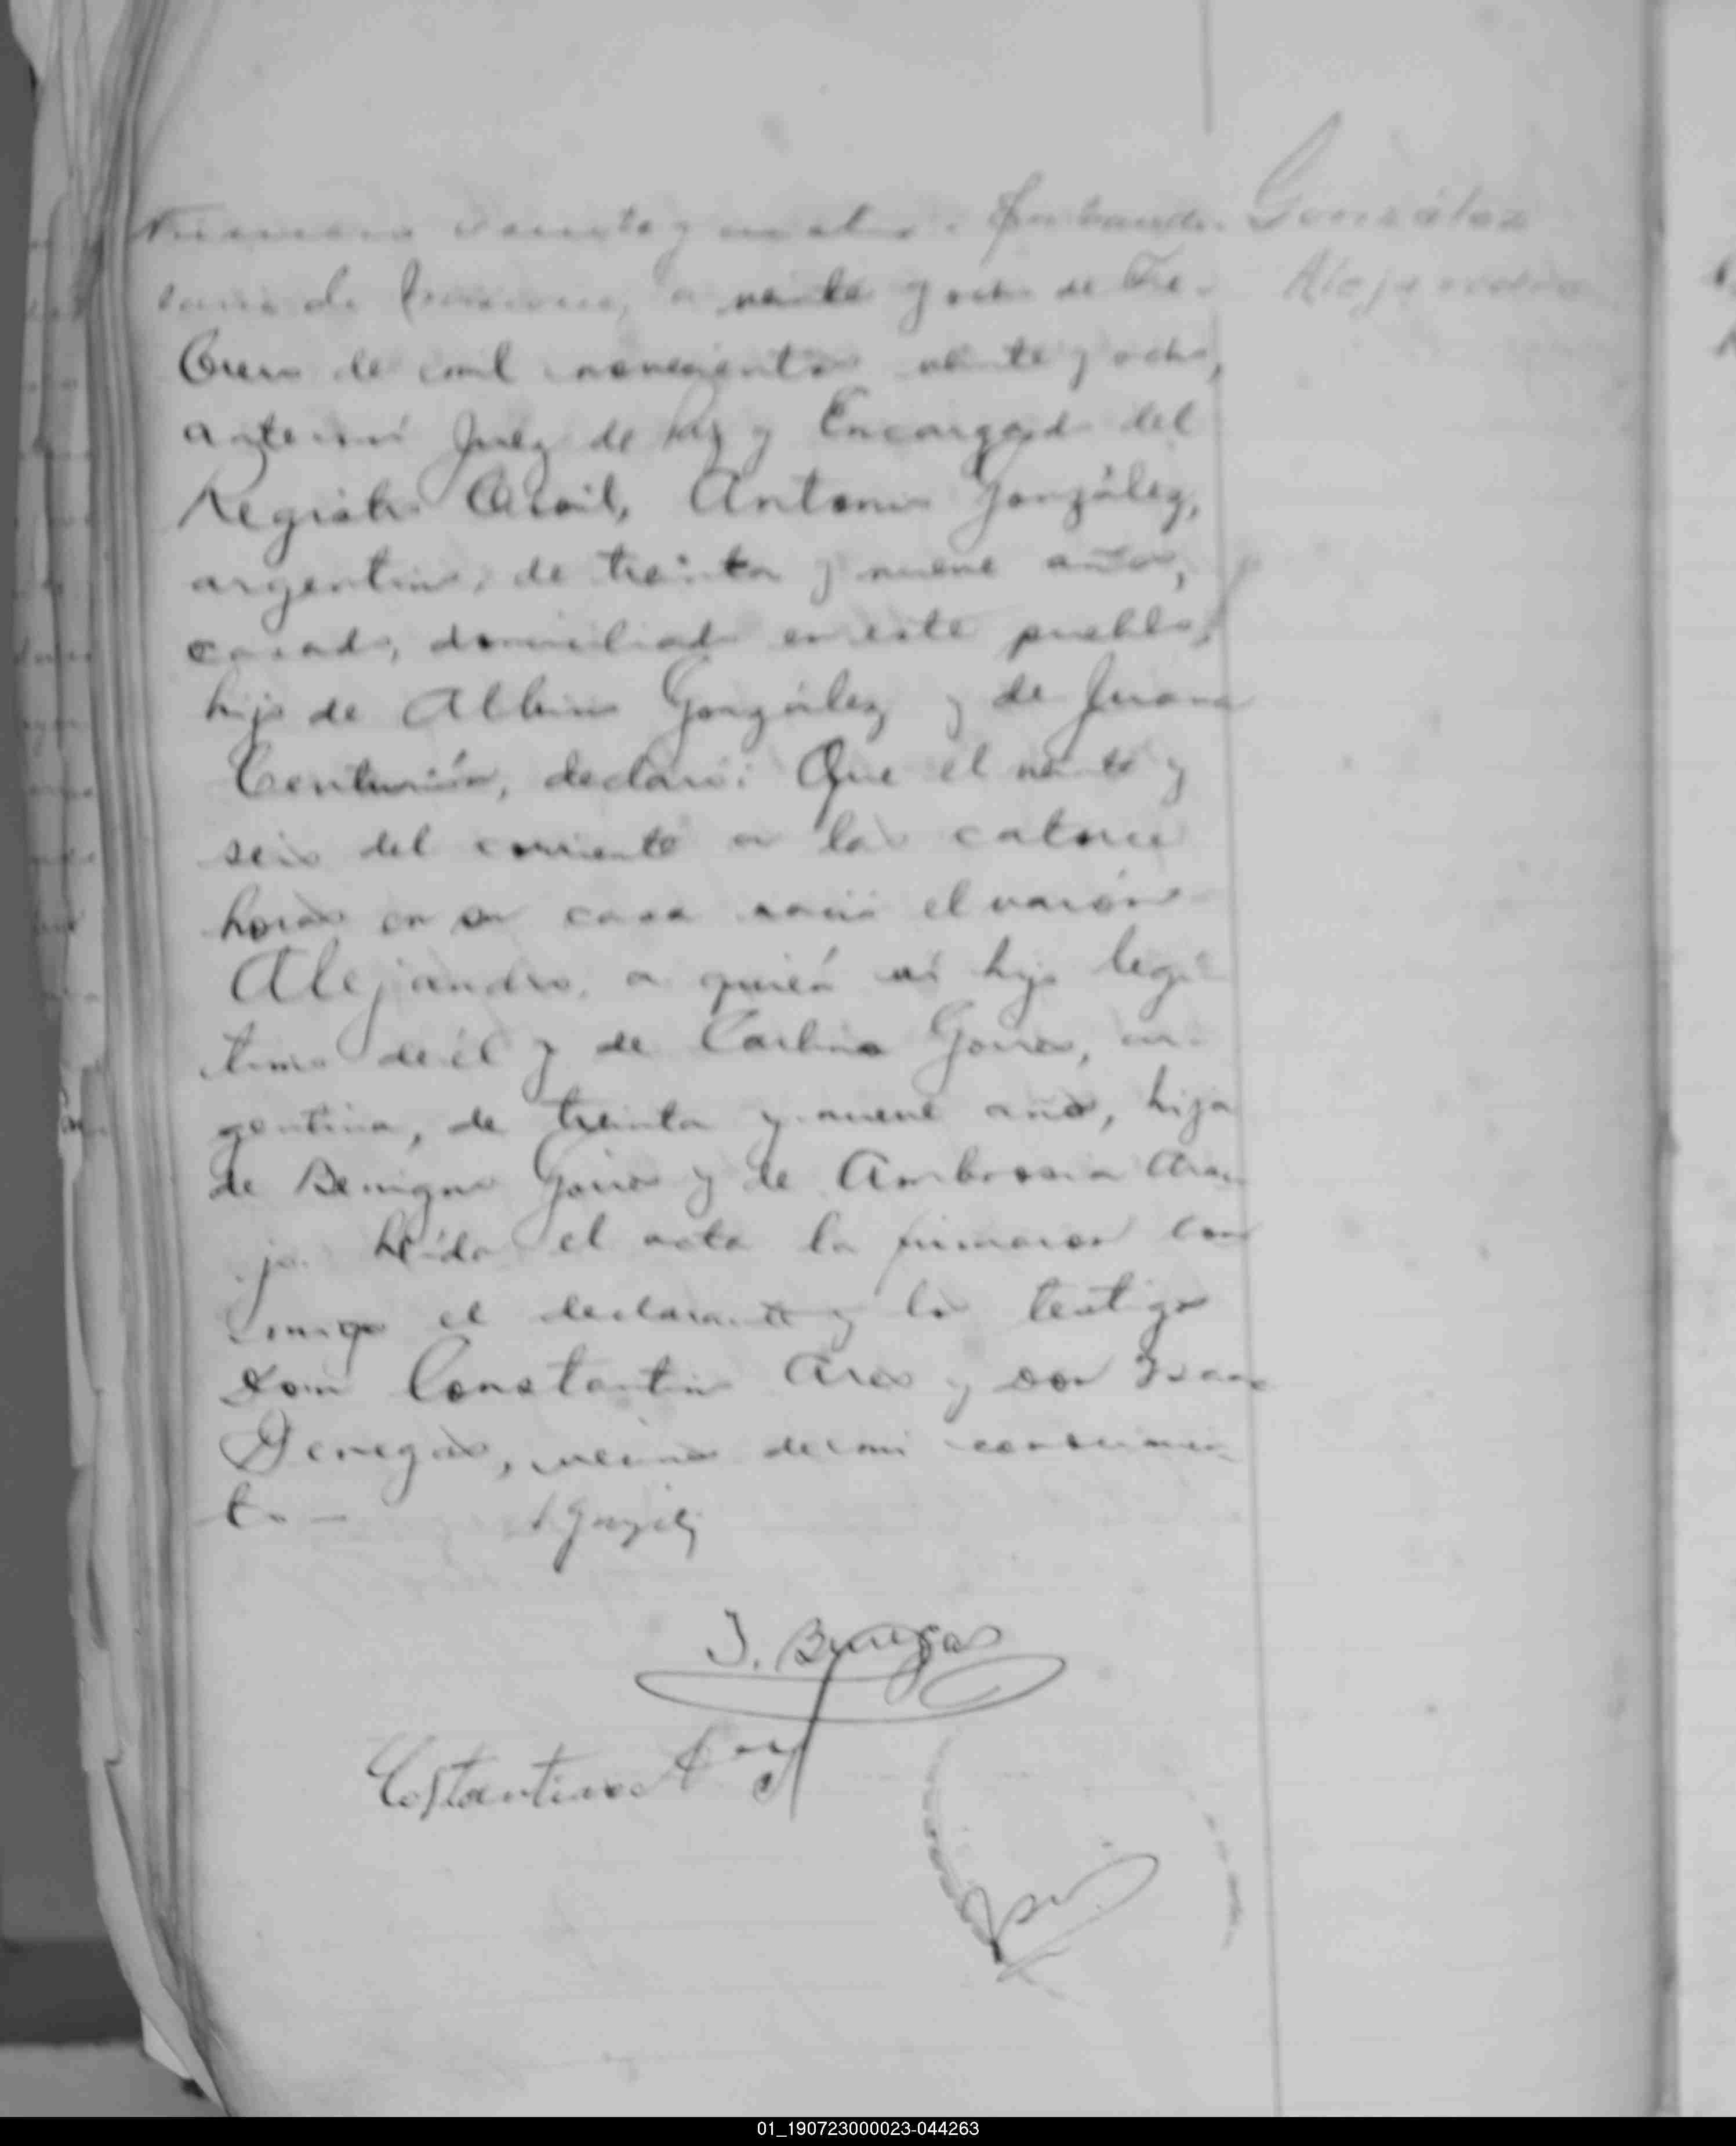 Número veinte y cuatro.
González
de a veinte y ocho de Fe-
Alejandro
brero de mil novecientos veinte y ocho,
ante mí Juez de Paz y Encargado del
Registro Civil, Antonio González,
argentino, de treinta y nueve años,
casado, domiciliado en este pueblo,
hijo de Albino González y de Juana
Centurión, declaró: Que el veinte y
seis del corriente a las catorce
horas en su casa nació el varón
Alejandro, a quién vi hijo legí
timo de él y de Carlina ar-
gentina, de treinta y nueve años, hija
de Benigno y de Ambrosia
jo. Leída el acta la firmaron con
migo el declarante y los testigos
don Constantino Ares y don Isaac
Benegas, vecinos de mi conocimien
to —
A González
I. Benegas
Costantino